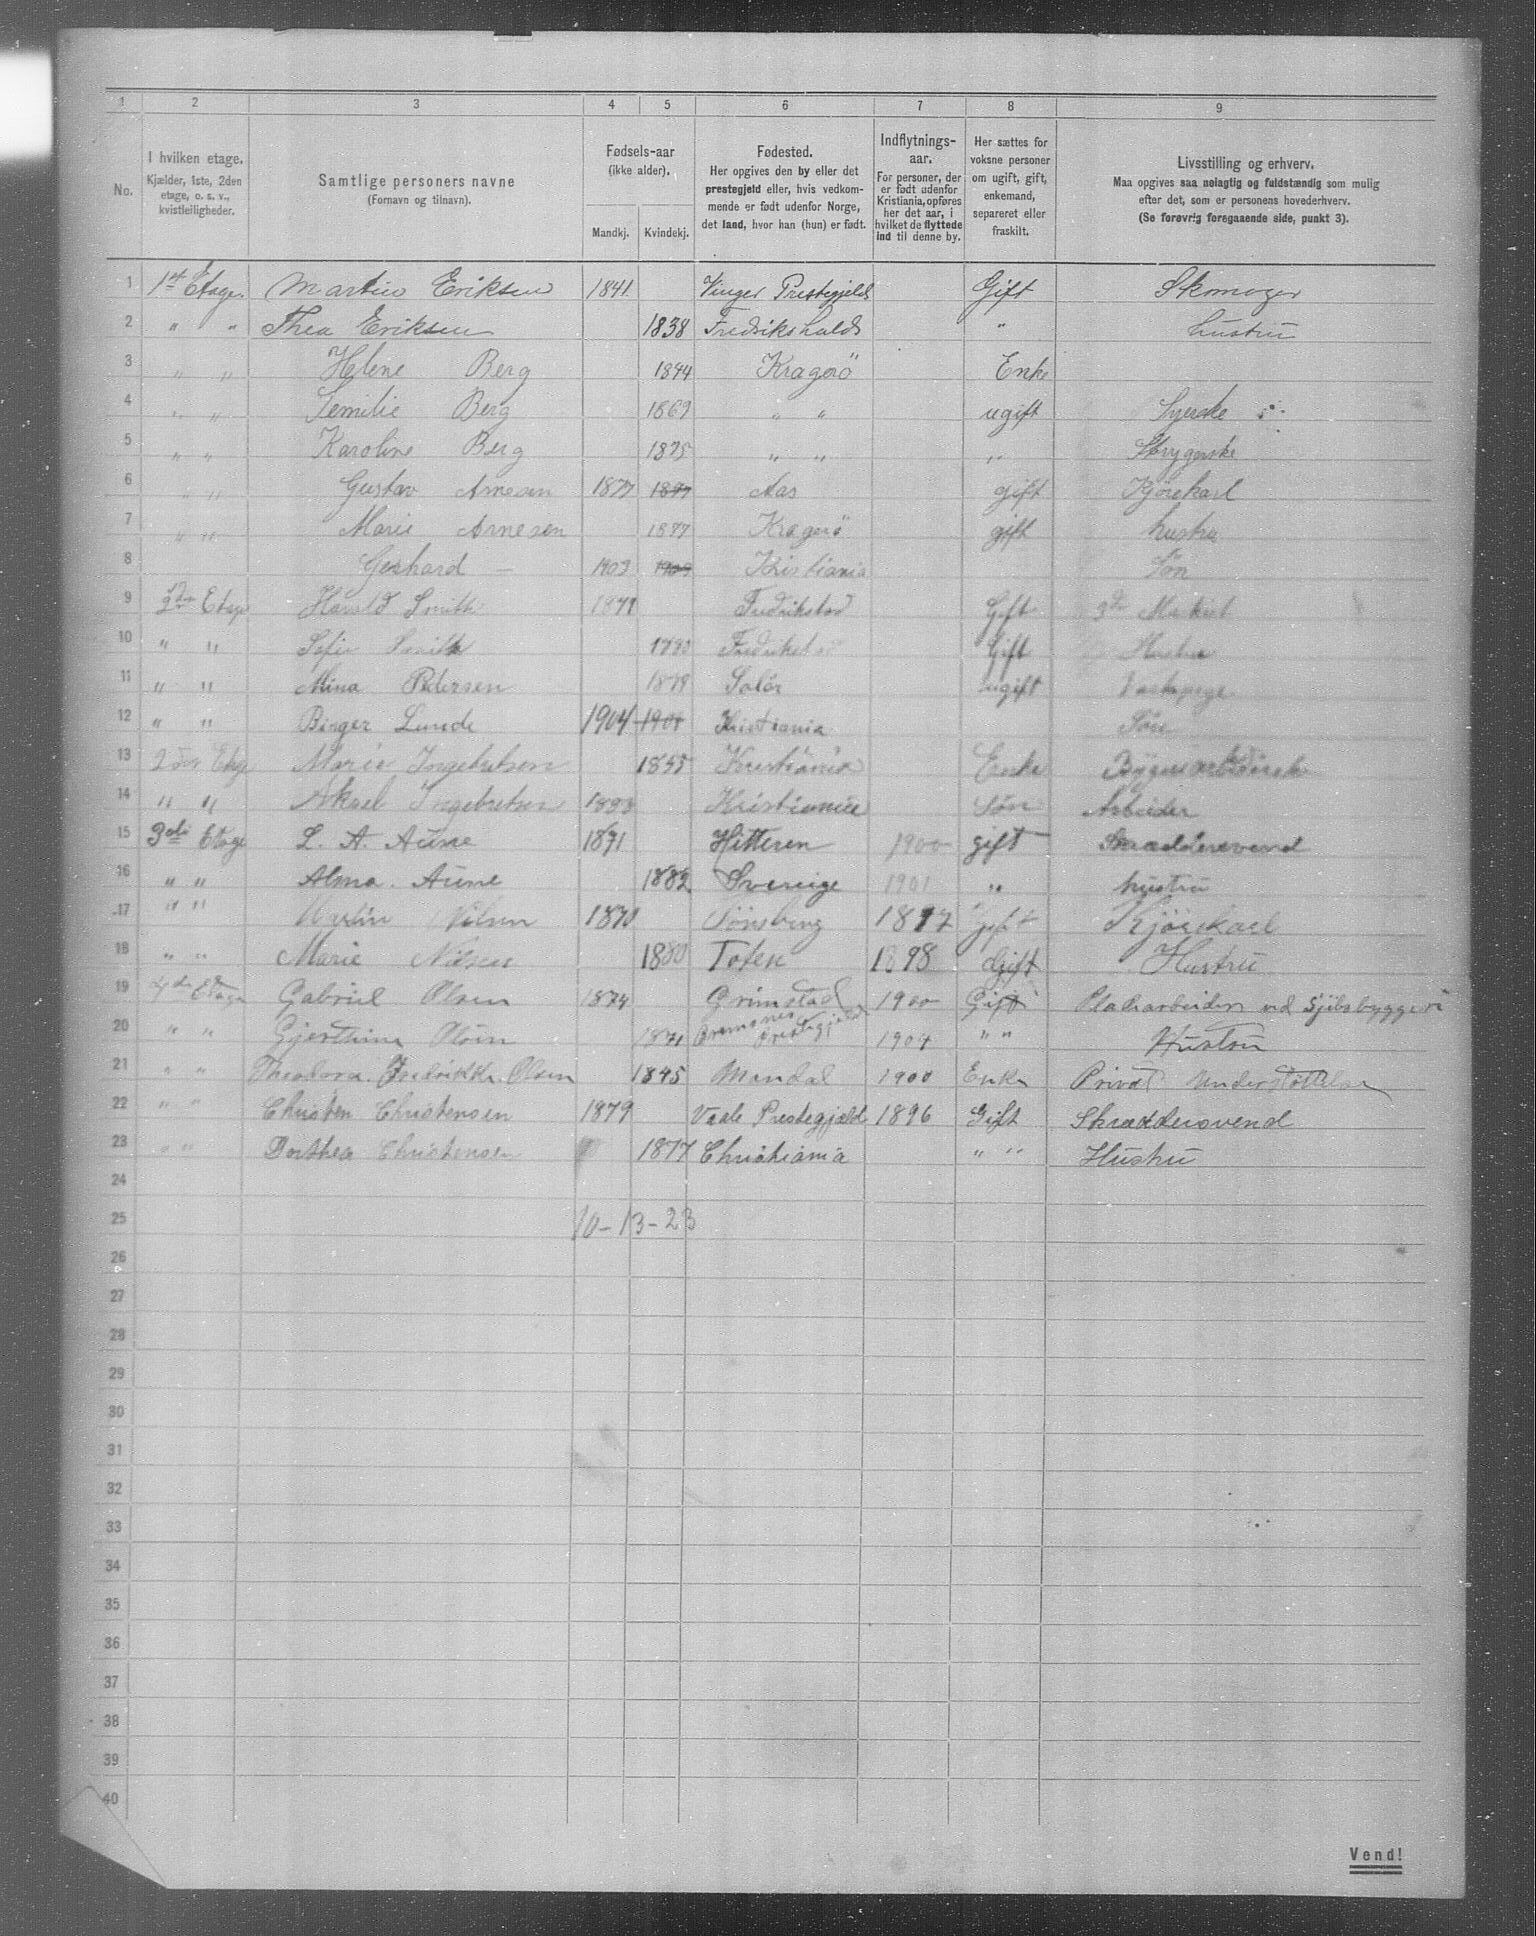 1 2 3 4 5 6 7 8 9
No.
I hvilken etage.
Kjælder, 1ste, 2den
etage, o. s. v.,
kvistleiligheder.
Samtlige personers navne
(Fornavn og tilnavn).
Fødsels-aar
(ikke alder).
Mandkj. Kvindekj.
Fødested.
Her opgives den by eller det
prestegjeld eller, hvis vedkom-
mende er født udenfor Norge,
det land, hvor han (hun) er født.
Indflytnings-
aar.
For personer, der
er født udenfor
Kristiania, opføres
her det aar, i
hvilket de flyttede
ind til denne by.
Her sættes for
voksne personer
om ugift, gift,
enkemand,
separeret eller
fraskilt.
Livsstilling og erhverv.
Maa opgives saa nøiagtig og fuldstændig som mulig
efter det, som er personens hovederhverv.
(Se forøvrig foregaaende side, punkt 3).
1 1st Etage. Martin Eriksen 1841. Vinger Prestegjeld Gift Skomager
2 " " Thea Eriksen 1838 Fredrikshald " hustru
3 " " Helene Berg 1844 Kragerö Enke
4 " " Berg 1869 " " ugift Syerske
5 " " Karoline Berg 1875 " " " Strygerske
6 " " Gustav Arnesen 1877 1877 Aas gift Kjörekarl
7 " " Marie Arnesen 1877 Kragerö gift hustru
8 Gerhard — 1903 1903 Kristiania Sön
9 2den Etage Harald Smith Fredrikstad Gift
10 " " Sofie Smith 1880 Fredrikstad Gift Hustru
11 " " Mina Pedersen 1879 Solör ugift
12 " " Birger Lunde 1904 Kristiania Sön
13 2den Etage Marie Ingebretsen 1855 Kristiania Enke
14 " " Aksel Ingebretsen Kristiania Sön Arbeider
15 3die Etage L. A. Aune 1871 Hitteren 1900 gift Skræddersvend
16 " " Alma. Aune 1882 Sverige 1901 " hustru
17 " " Martin Nilsen 1870 Tönsberg 1897 Gift Kjörekarl
18 " " Marie Nilsen 1880 Toten 1898 Gift Hustru
19 4de Etage Gabriel Olsen 1874 Grimstad 1900 Gift Pladearbeider ved Skibsbyggeri
20 " " Olsen 1871 Bremsnes Prestegjeld 1904 " " Hustru
21 " " Theodora. Fredrikke. Olsen 1845 Mandal 1900 Enke Privat Understöttelse
22 " " Christen Christensen 1879 Vaale Prestegjæld 1896 Gift Skræddersvend
23 " " Dorthea Christensen 1877 Christiania " " Hustru
24
25 10-13-23
26
27
28
29
30
31
32
33
34
35
36
37
38
39
40
Vend!